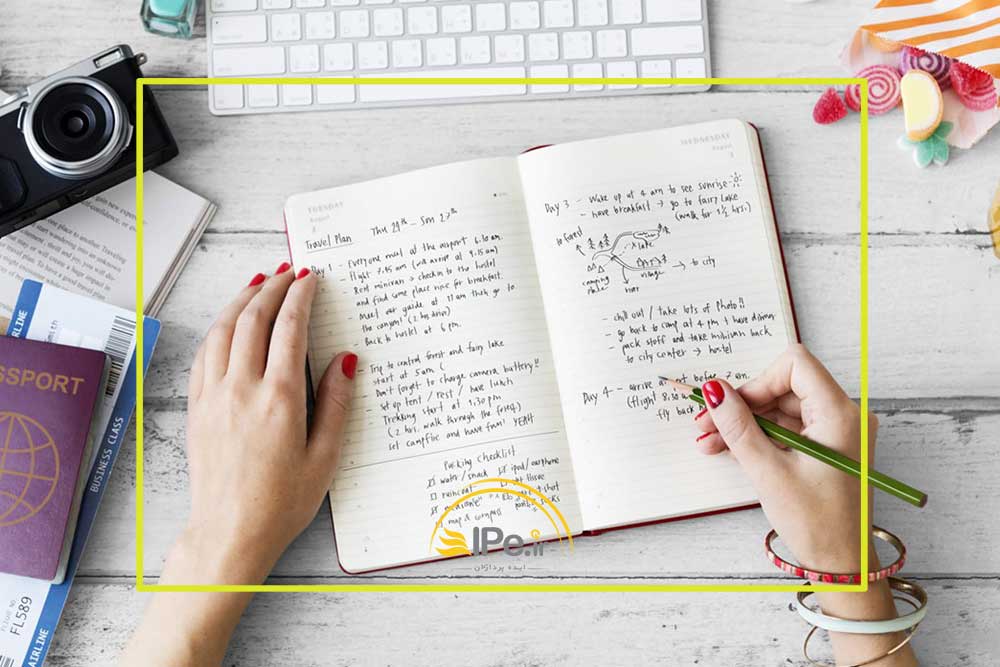 TUESDAY
August
Travel Plan Thu 29th - Sun
Day 1 - Everyone meet at the airport 6.10 am.
flight 7.45 am (will arrive at 9.15 am)
Rent minivan → checkin to the hostel
and find some place nice for breakfast.
- Meet our guide at 11 am then go to
the canyon (2 hrs drive)
- Back to hostel at 6 pm.
- Trip to central forest and fairy lake
start at 5 am (
Don't forget to charge camera battery!!
- Set up tent / rest / have lunch
- Trekking start at 1.30 pm
(2 hrs. walk through the forest)
set campfire and have fun! YEAH
Packing Checklist
water / snack
ipod / earphone
raincoat
tissue
map & compass
WEDNESDAY
August
Day 3 - Wake up at 4 am to see sunrise
- have breakfast → go to fairy lake
(walk for 1½ hrs.)
to forest
lake
village
→ to city
camping place
river
- chill out / take lots of Photo!!
- go back to camp at 4 pm & have dinner
- pack stuff and take minivan back
to city center → hostel
Day 4 - arrive before 7 am.
(flight 8.30
fly back
PASSPORT
BUSINESS CLASS
FL589
AIRLINE
IPe.ir
ایده پردازان